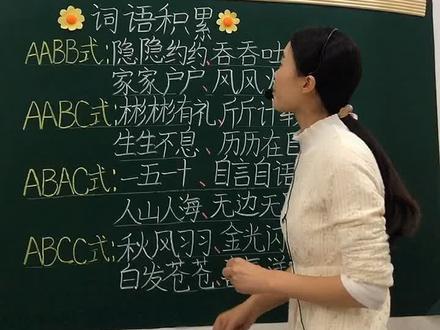 词语积累
AABB式:隐隐约约、吞吞吐
家家户户、风风
AABC式:彬彬有礼、斤斤计
生生不息、历历在
ABAC式:一五一十、自言自语
人山人海、无边无
ABCC式:秋风习习、金光闪
白发苍苍、